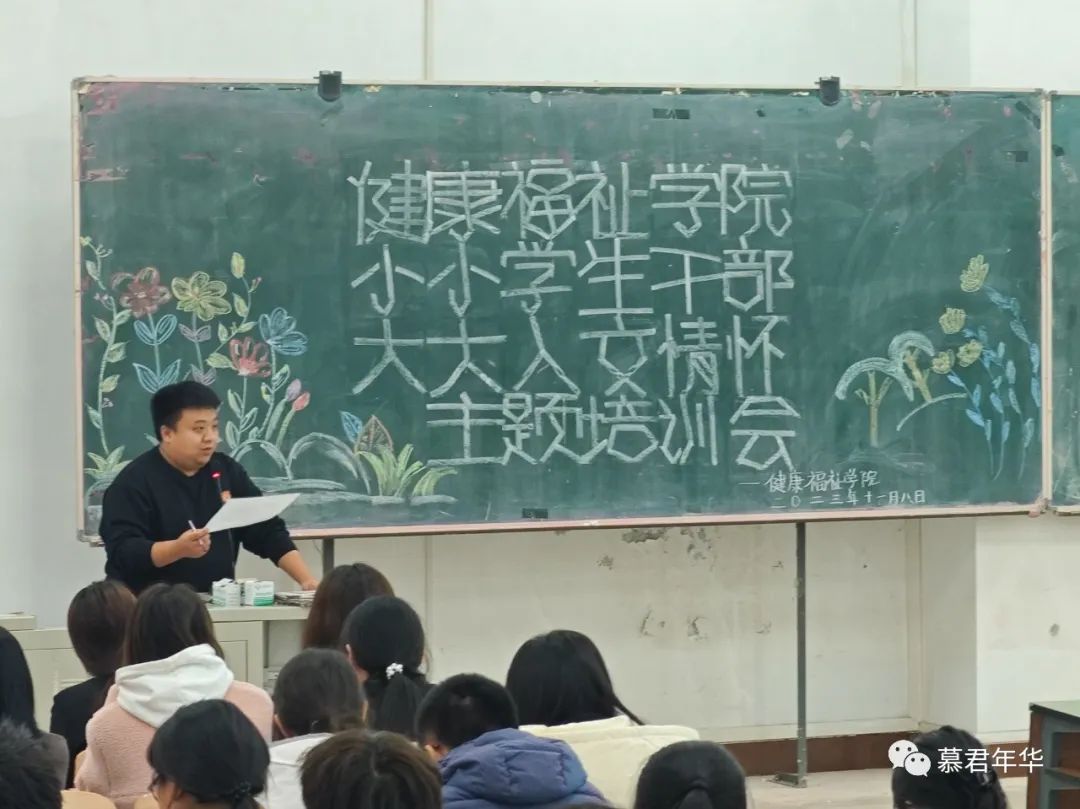 健康福祉学院
小小学生干部
大大人文情怀
主题培训会
—健康福祉学院
二〇二三年十一月八日
慕君年华